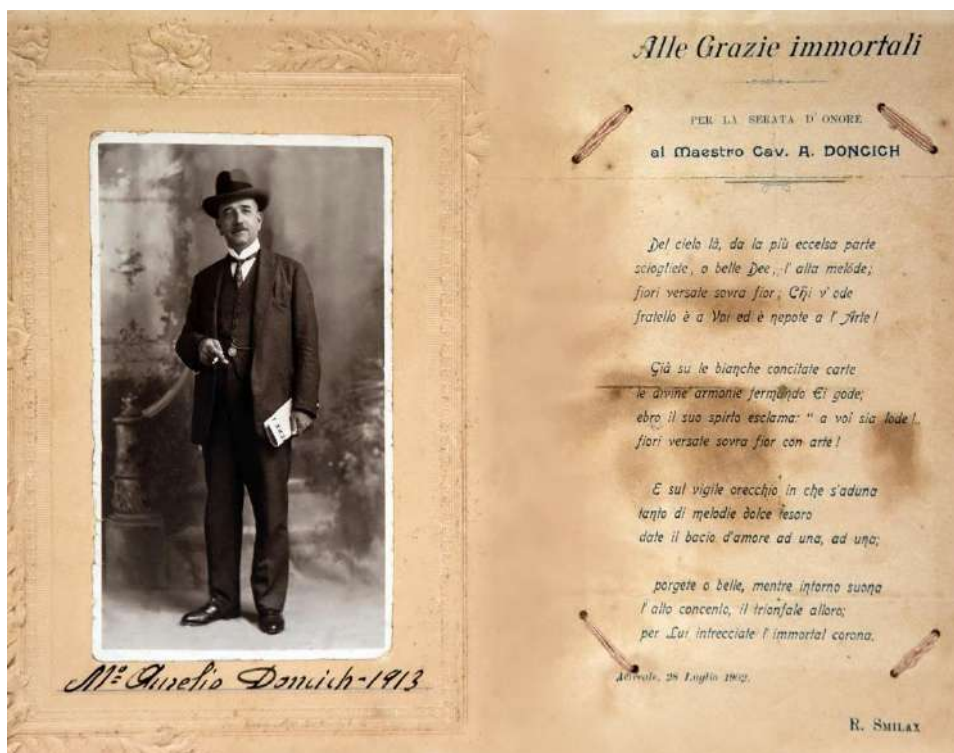 Mº Aurelio Doncich-1913
Alle Grazie immortali
PER LA SERATA D'ONORE
al Maestro Cav. A. DONCICH
Del cielo là, da la più eccelsa parte
sciogliete, o belle Dee, l'alta melòde;
fiori versate sovra fior; Chi v'ode
fratello è a Voi ed è nepote a l'Arte!
Già su le bianche concitate carte
le divine armonie fermando Ei gode;
ebro il suo spirto esclama: " a voi sia lode!..
fiori versate sovra fior con arte!
E sul vigile orecchio in che s'aduna
tanto di melodie dolce tesoro
date il bacio d'amore ad una, ad una;
porgete o belle, mentre intorno suona
l'alto concento, il trionfale alloro;
per Lui intrecciate l'immortal corona.
28 Luglio 1902.
R. SMILAX